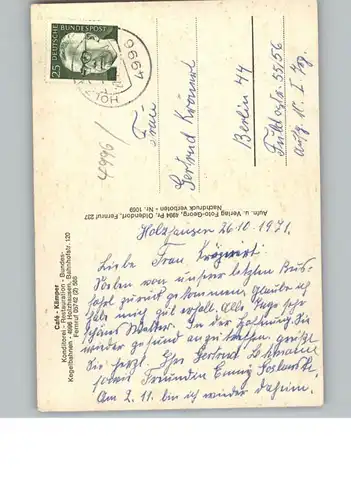 25
DEUTSCHE
BUNDESPOST
HOLZ
4994
4996/
Frau
Gertrud
Berlin 44
Fuldastr. 55/56
Café - Kämper
Konditorei - Restauration - Bundes-
Kegelbahnen - 4996 Holzhausen, Bahnhofstr. 120
Fernruf 05742 (2) 588
Aufn. u. Verlag Foto-Georg, 4994 Pr. Oldendorf, Fernruf 227
Nachdruck verboten - Nr. 1069
Holzhausen 26.10.1971.
Liebe Frau
von unserer letzten Bus-
fahrt zurück gekommen. Glaube ich
habe mich gut erholt. Alle Tage sehr
schönes Wetter. In der Hoffnung Sie
wieder gesund anzutreffen, grüßt
Sie herzl. Ihre Gertrud
sowie Freundin
Am 2.11. bin ich wieder daheim.